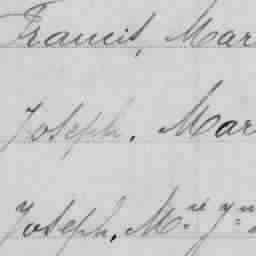 Francis, Mar
Joseph. Mar
Joseph, M.